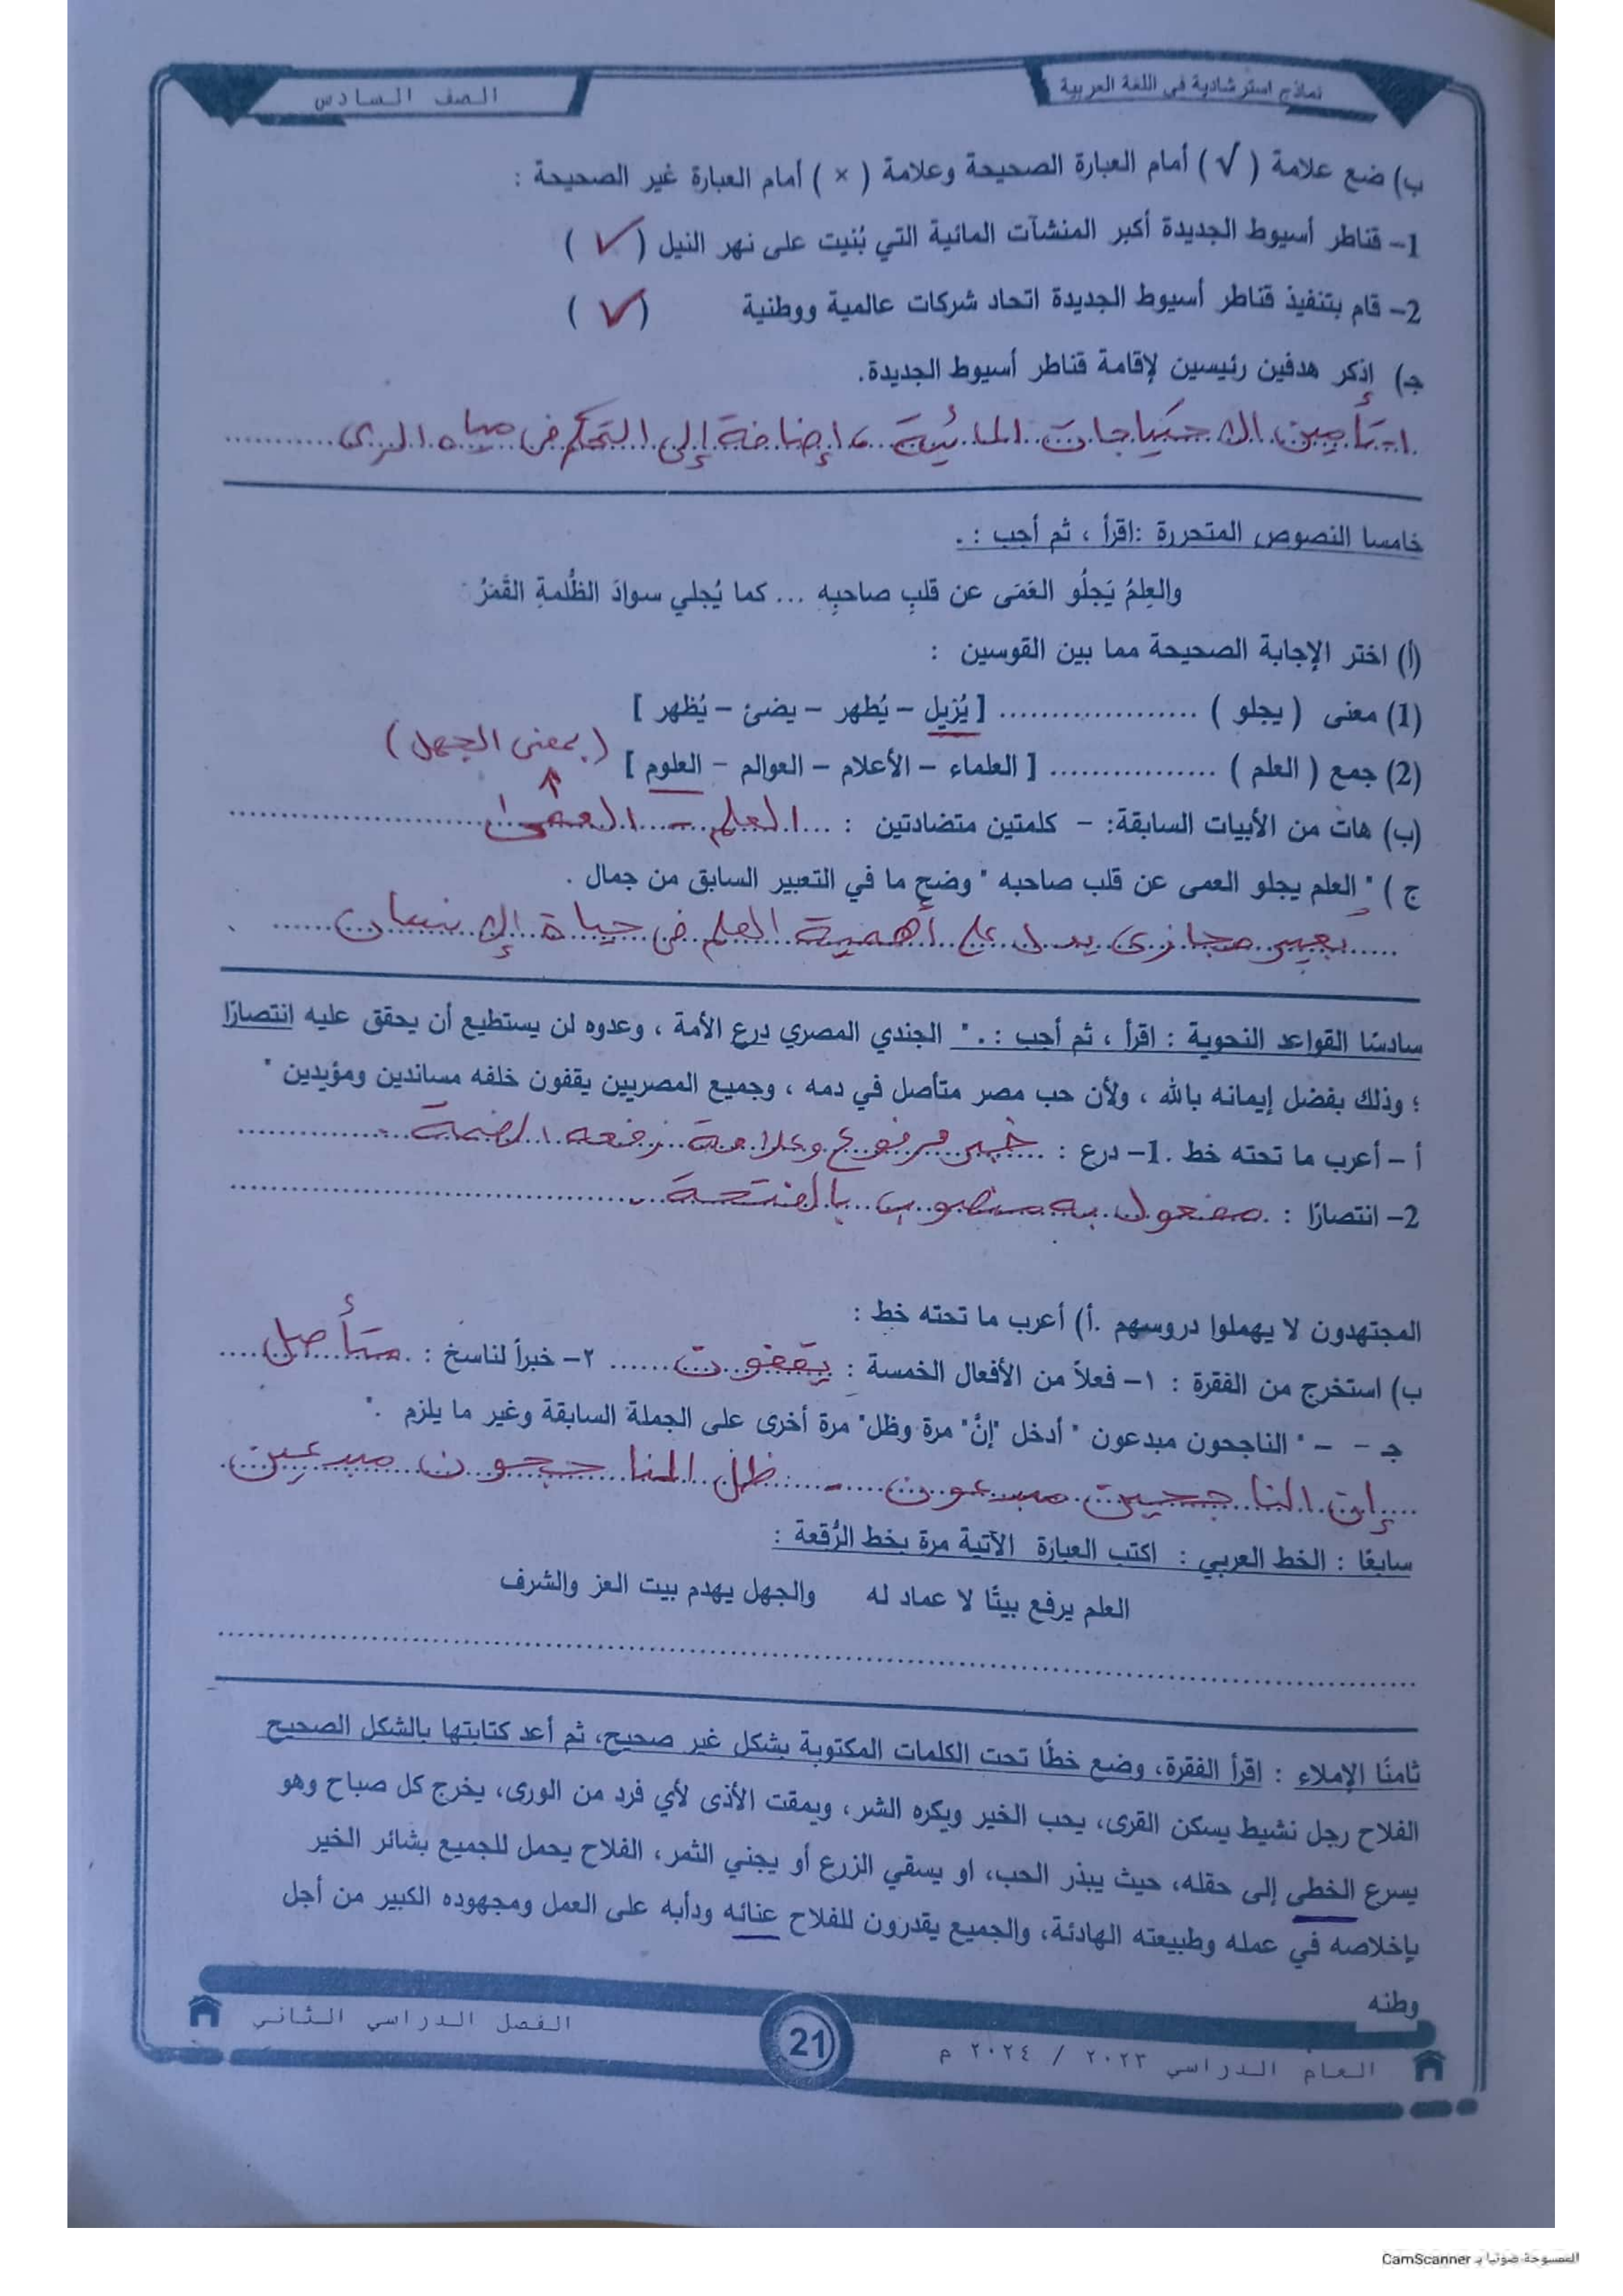 نماذج استرشادية في اللغة العربية
الصف السادس
ب) ضع علامة ( √ ) أمام العبارة الصحيحة وعلامة ( × ) أمام العبارة غير الصحيحة :
1- قناطر أسيوط الجديدة أكبر المنشآت المائية التي بُنيت على نهر النيل ( ✓ )
2- قام بتنفيذ قناطر أسيوط الجديدة اتحاد شركات عالمية ووطنية ( ✓ )
جـ) إذكر هدفين رئيسين لإقامة قناطر أسيوط الجديدة.
تأمين الاحتياجات المائية ، إضافة إلى التحكم في مياه الري
خامسا النصوص المتحررة :اقرأ ، ثم أجب : .
والعِلمُ يَجلُو العَمَى عن قلبِ صاحبِه ... كما يُجلي سوادَ الظُّلمةِ القَمَرُ
(أ) اختر الإجابة الصحيحة مما بين القوسين :
(1) معنى ( يجلو ) ................... [ يُزيل – يُطهر – يضئ – يُظهر ]
(2) جمع ( العلم ) ................ [ العلماء – الأعلام – العوالم – العلوم ]
(بمعنى الجهل)
(ب) هات من الأبيات السابقة: – كلمتين متضادتين : ... العلم – العمى
ج ) " العلم يجلو العمى عن قلب صاحبه " وضح ما في التعبير السابق من جمال .
تعبير مجازى يدل على أهمية العلم فى حياة الإنسان
سادسًا القواعد النحوية : اقرأ ، ثم أجب : . " الجندي المصري درع الأمة ، وعدوه لن يستطيع أن يحقق عليه انتصارًا
؛ وذلك بفضل إيمانه بالله ، ولأن حب مصر متأصل في دمه ، وجميع المصريين يقفون خلفه مساندين ومؤيدين "
أ – أعرب ما تحته خط .1- درع : خبر مرفوع وعلامة رفعه الضمة
2- انتصارًا : مفعول به منصوب بالفتحة
المجتهدون لا يهملوا دروسهم .أ) أعرب ما تحته خط :
ب) استخرج من الفقرة : ١- فعلاً من الأفعال الخمسة : يقفون ...... ٢- خبراً لناسخ : متأصل
جـ - – " الناجحون مبدعون " أدخل "إنَّ" مرة وظل" مرة أخرى على الجملة السابقة وغير ما يلزم ."
إن الناجحين مبدعون – ظل الناجحون مبدعين
سابعًا : الخط العربي : اكتب العبارة الآتية مرة بخط الرُّقعة :
العلم يرفع بيتًا لا عماد له والجهل يهدم بيت العز والشرف
ثامنًا الإملاء : اقرأ الفقرة، وضع خطًا تحت الكلمات المكتوبة بشكل غير صحيح، ثم أعد كتابتها بالشكل الصحيح
الفلاح رجل نشيط يسكن القرى، يحب الخير ويكره الشر، ويمقت الأذى لأي فرد من الورى، يخرج كل صباح وهو
يسرع الخطى إلى حقله، حيث يبذر الحب، او يسقي الزرع أو يجني الثمر، الفلاح يحمل للجميع بشائر الخير
بإخلاصه في عمله وطبيعته الهادئة، والجميع يقدرون للفلاح عنائه ودأبه على العمل ومجهوده الكبير من أجل
وطنه
العام الدراسي ٢٠٢٣ / ٢٠٢٤ م
21
الفصل الدراسي الثاني
الممسوحة ضوئيا بـ CamScanner